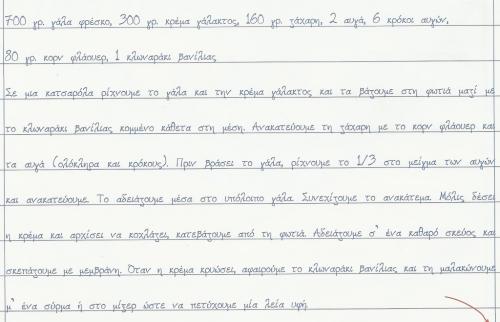 700 γρ. γάλα φρέσκο, 300 γρ. κρέμα γάλακτος, 160 γρ. ζάχαρη, 2 αυγά, 6 κρόκοι αυγών,
80 γρ. κορν φλάουερ, 1 κλωναράκι βανίλιας
Σε μια κατσαρόλα ρίχνουμε το γάλα και την κρέμα γάλακτος και τα βάζουμε στη φωτιά μαζί με
το κλωναράκι βανίλιας κομμένο κάθετα στη μέση. Ανακατεύουμε τη ζάχαρη με το κορν φλάουερ και
τα αυγά (ολόκληρα και κρόκους). Πριν βράσει το γάλα, ρίχνουμε το 1/3 στο μείγμα των αυγών
και ανακατεύουμε. Το αδειάζουμε μέσα στο υπόλοιπο γάλα. Συνεχίζουμε το ανακάτεμα. Μόλις δέσει
η κρέμα και αρχίσει να κοχλάζει, κατεβάζουμε από τη φωτιά. Αδειάζουμε σ' ένα καθαρό σκεύος και
σκεπάζουμε με μεμβράνη. Όταν η κρέμα κρυώσει, αφαιρούμε το κλωναράκι βανίλιας και τη μαλακώνουμε
μ' ένα σύρμα ή στο μίξερ ώστε να πετύχουμε μία λεία υφή.